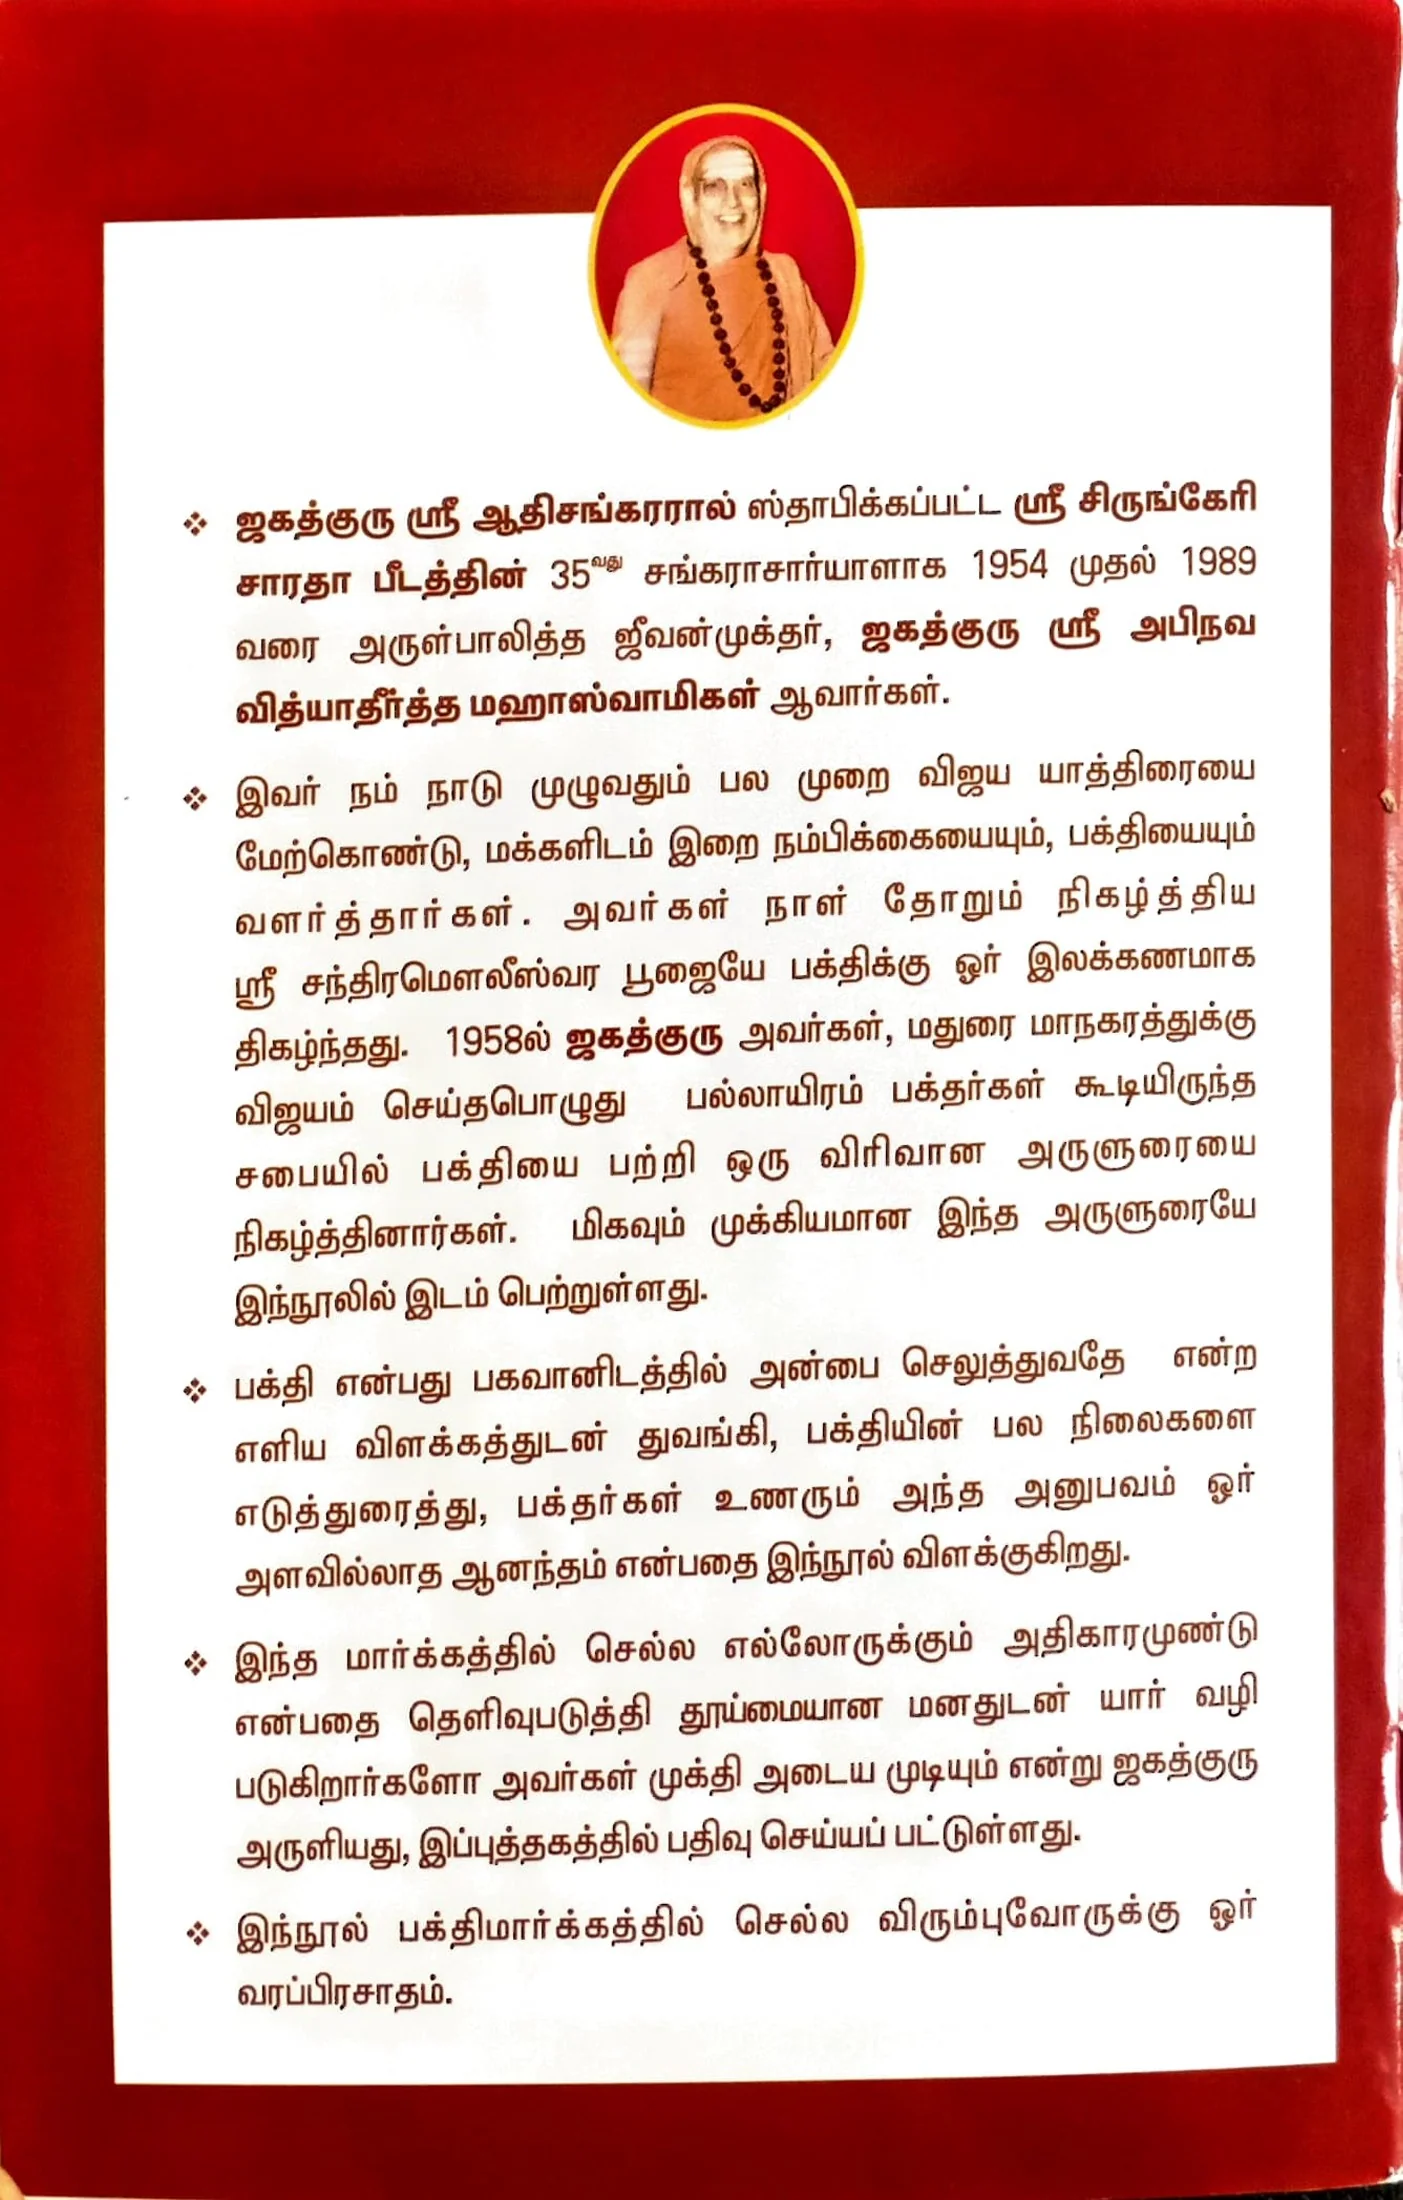 ❖ ஜகத்குரு ஸ்ரீ ஆதிசங்கரரால் ஸ்தாபிக்கப்பட்ட ஸ்ரீ சிருங்கேரி
சாரதா பீடத்தின் 35வது சங்கராசார்யாளாக 1954 முதல் 1989
வரை அருள்பாலித்த ஜீவன்முக்தர், ஜகத்குரு ஸ்ரீ அபிநவ
வித்யாதீர்த்த மஹாஸ்வாமிகள் ஆவார்கள்.
❖ இவர் நம் நாடு முழுவதும் பல முறை விஜய யாத்திரையை
மேற்கொண்டு, மக்களிடம் இறை நம்பிக்கையையும், பக்தியையும்
வளர்த்தார்கள். அவர்கள் நாள் தோறும் நிகழ்த்திய
ஸ்ரீ சந்திரமௌலீஸ்வர பூஜையே பக்திக்கு ஓர் இலக்கணமாக
திகழ்ந்தது. 1958ல் ஜகத்குரு அவர்கள், மதுரை மாநகரத்துக்கு
விஜயம் செய்தபொழுது பல்லாயிரம் பக்தர்கள் கூடியிருந்த
சபையில் பக்தியை பற்றி ஒரு விரிவான அருளுரையை
நிகழ்த்தினார்கள். மிகவும் முக்கியமான இந்த அருளுரையே
இந்நூலில் இடம் பெற்றுள்ளது.
❖ பக்தி என்பது பகவானிடத்தில் அன்பை செலுத்துவதே என்ற
எளிய விளக்கத்துடன் துவங்கி, பக்தியின் பல நிலைகளை
எடுத்துரைத்து, பக்தர்கள் உணரும் அந்த அனுபவம் ஓர்
அளவில்லாத ஆனந்தம் என்பதை இந்நூல் விளக்குகிறது.
❖ இந்த மார்க்கத்தில் செல்ல எல்லோருக்கும் அதிகாரமுண்டு
என்பதை தெளிவுபடுத்தி தூய்மையான மனதுடன் யார் வழி
படுகிறார்களோ அவர்கள் முக்தி அடைய முடியும் என்று ஜகத்குரு
அருளியது, இப்புத்தகத்தில் பதிவு செய்யப் பட்டுள்ளது.
❖ இந்நூல் பக்திமார்க்கத்தில் செல்ல விரும்புவோருக்கு ஓர்
வரப்பிரசாதம்.